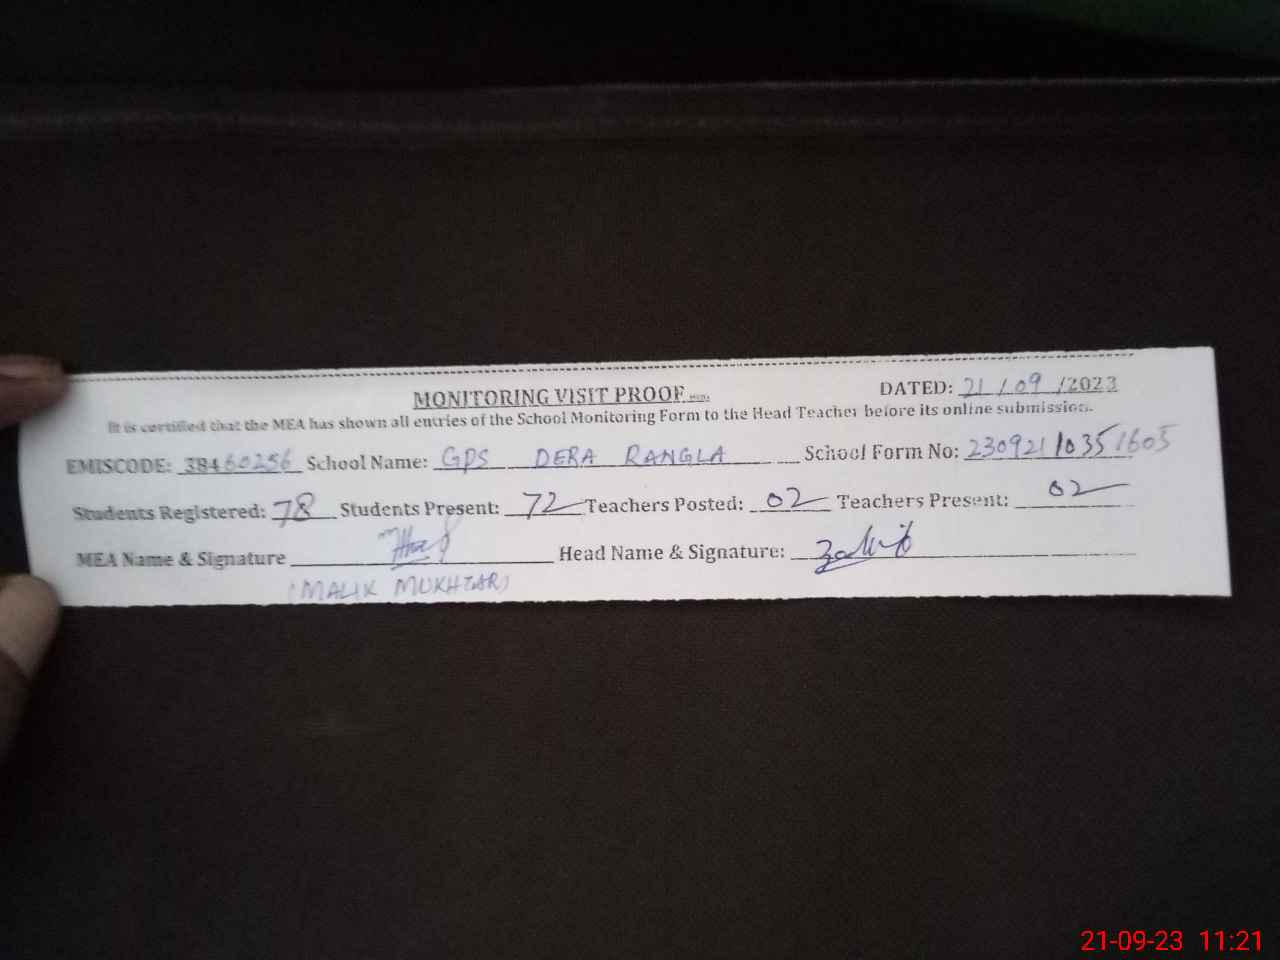 MONITORING VISIT PROOF
DATED: 21/09/2023
It is certified that the MEA has shown all entries of the School Monitoring Form to the Head Teacher before its online submission.
EMISCODE: 38460256 School Name: GPS DERA RANGLA School Form No: 230921 10351605
Students Registered: 78 Students Present: 72 Teachers Posted: 02 Teachers Present: 02
MEA Name & Signature Head Name & Signature:
(MALIK MUKHTAR)
21-09-23 11:21